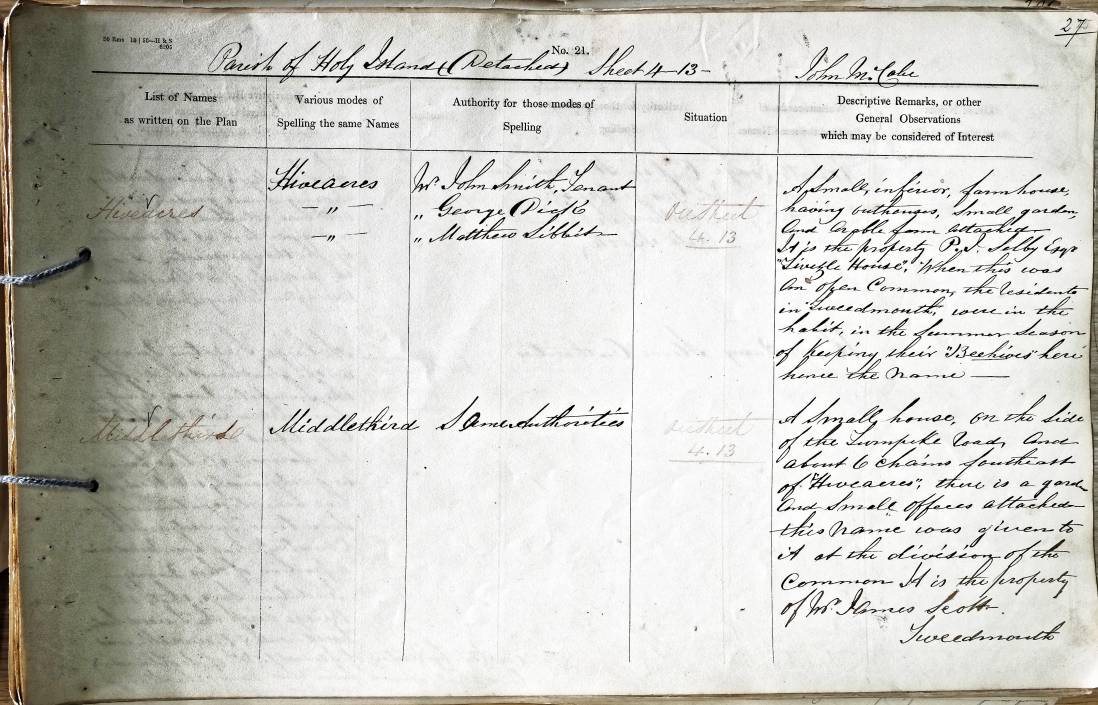 27
50 Rms 18 | 56—H & S
6205
No. 21.
Parish of Holy Island, (Detached) Sheet 4-13- John McCabe
List of Names
as written on the Plan
Various modes of
Spelling the same Names
Authority for those modes of
Spelling
Situation
Descriptive Remarks, or other
General Observations
which may be considered of Interest
Hiveacres
Hiveacres
— „ —
— „ —
Mr. John Smith, Tenant
„ George Dick
„ Matthew Sibbit
4.13
A Small, inferior, farmhouse,
having outhouses, Small garden,
and Arable farm attached.
It is the property P. J. Selby Esqr
House". When this was
an open Common, the residents
in Tweedmouth, were in the
habit, in the Summer Season
of Keeping their "Beehives" here
hence the name —
Middlethird
Middlethird
Same Authorities
4.13
A Small house, on the side
of the Turnpike road, and
about 6 chains Southeast
of "Hiveacres"; there is a garden
and small offices attached
this name was given to
it at the division of the
Common It is the property
of Mr. James Scott.
Tweedmouth